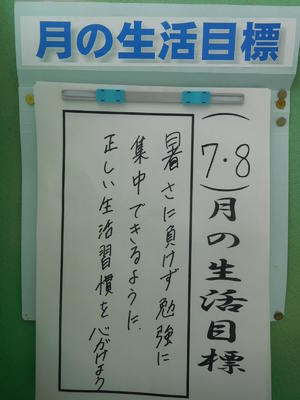 月の生活目標
（7・8）月の生活目標
暑さに負けず勉強に
集中できるように.
正しい生活習慣を心がけよう